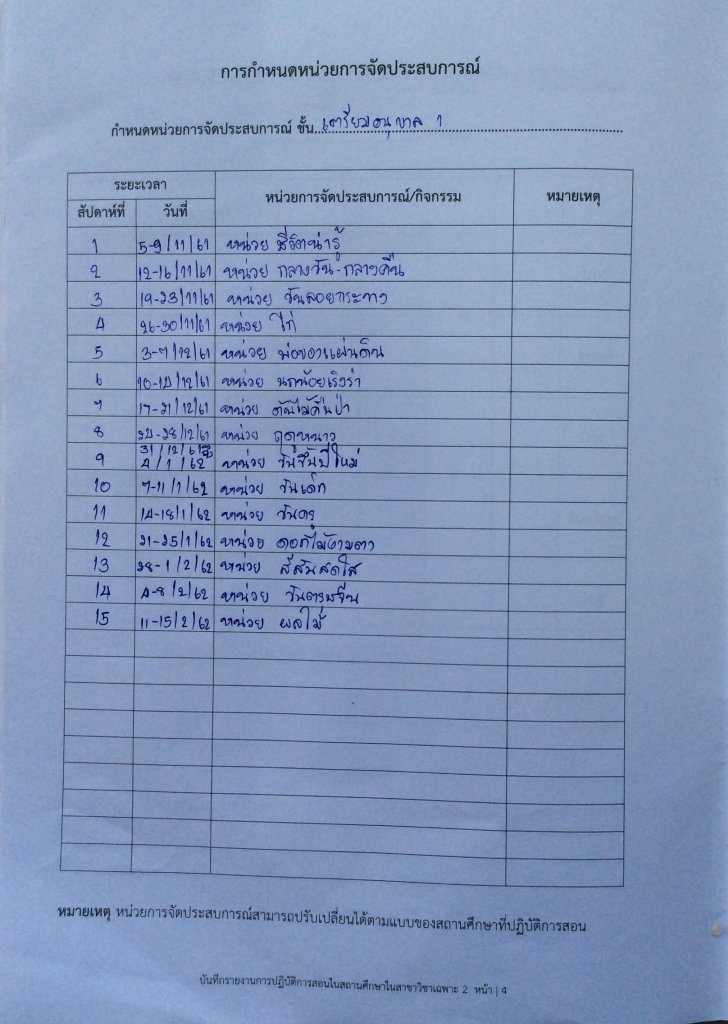 การกำหนดหน่วยการจัดประสบการณ์
กำหนดหน่วยการจัดประสบการณ์ ชั้น...เตรียมอนุบาล 1
ระยะเวลา หน่วยการจัดประสบการณ์/กิจกรรม หมายเหตุ
สัปดาห์ที่ วันที่
1 5-9/11/61 หน่วย ชีวิตน่ารู้
2 12-16/11/61 หน่วย กลางวัน-กลางคืน
3 19-23/11/61 หน่วย วันลอยกระทง
4 26-30/11/61 หน่วย ไก่
5 3-7/12/61 หน่วย พ่อของแผ่นดิน
6 10-14/12/61 หน่วย นกน้อยเริงร่า
7 17-21/12/61 หน่วย ต้นไม้คืนป่า
8 24-28/12/61 หน่วย ฤดูหนาว
9 31/12/61ถึง 4/1/62 หน่วย วันขึ้นปีใหม่
10 7-11/1/62 หน่วย วันเด็ก
11 14-18/1/62 หน่วย วันครู
12 21-25/1/62 หน่วย ดอกไม้งามตา
13 28-1/2/62 หน่วย สีสันสดใส
14 4-8/2/62 หน่วย วันตรุษจีน
15 11-15/2/62 หน่วย ผลไม้
หมายเหตุ หน่วยการจัดประสบการณ์สามารถปรับเปลี่ยนได้ตามแบบของสถานศึกษาที่ปฏิบัติการสอน
บันทึกรายงานการปฏิบัติการสอนในสถานศึกษาในสาขาวิชาเฉพาะ 2 หน้า | 4